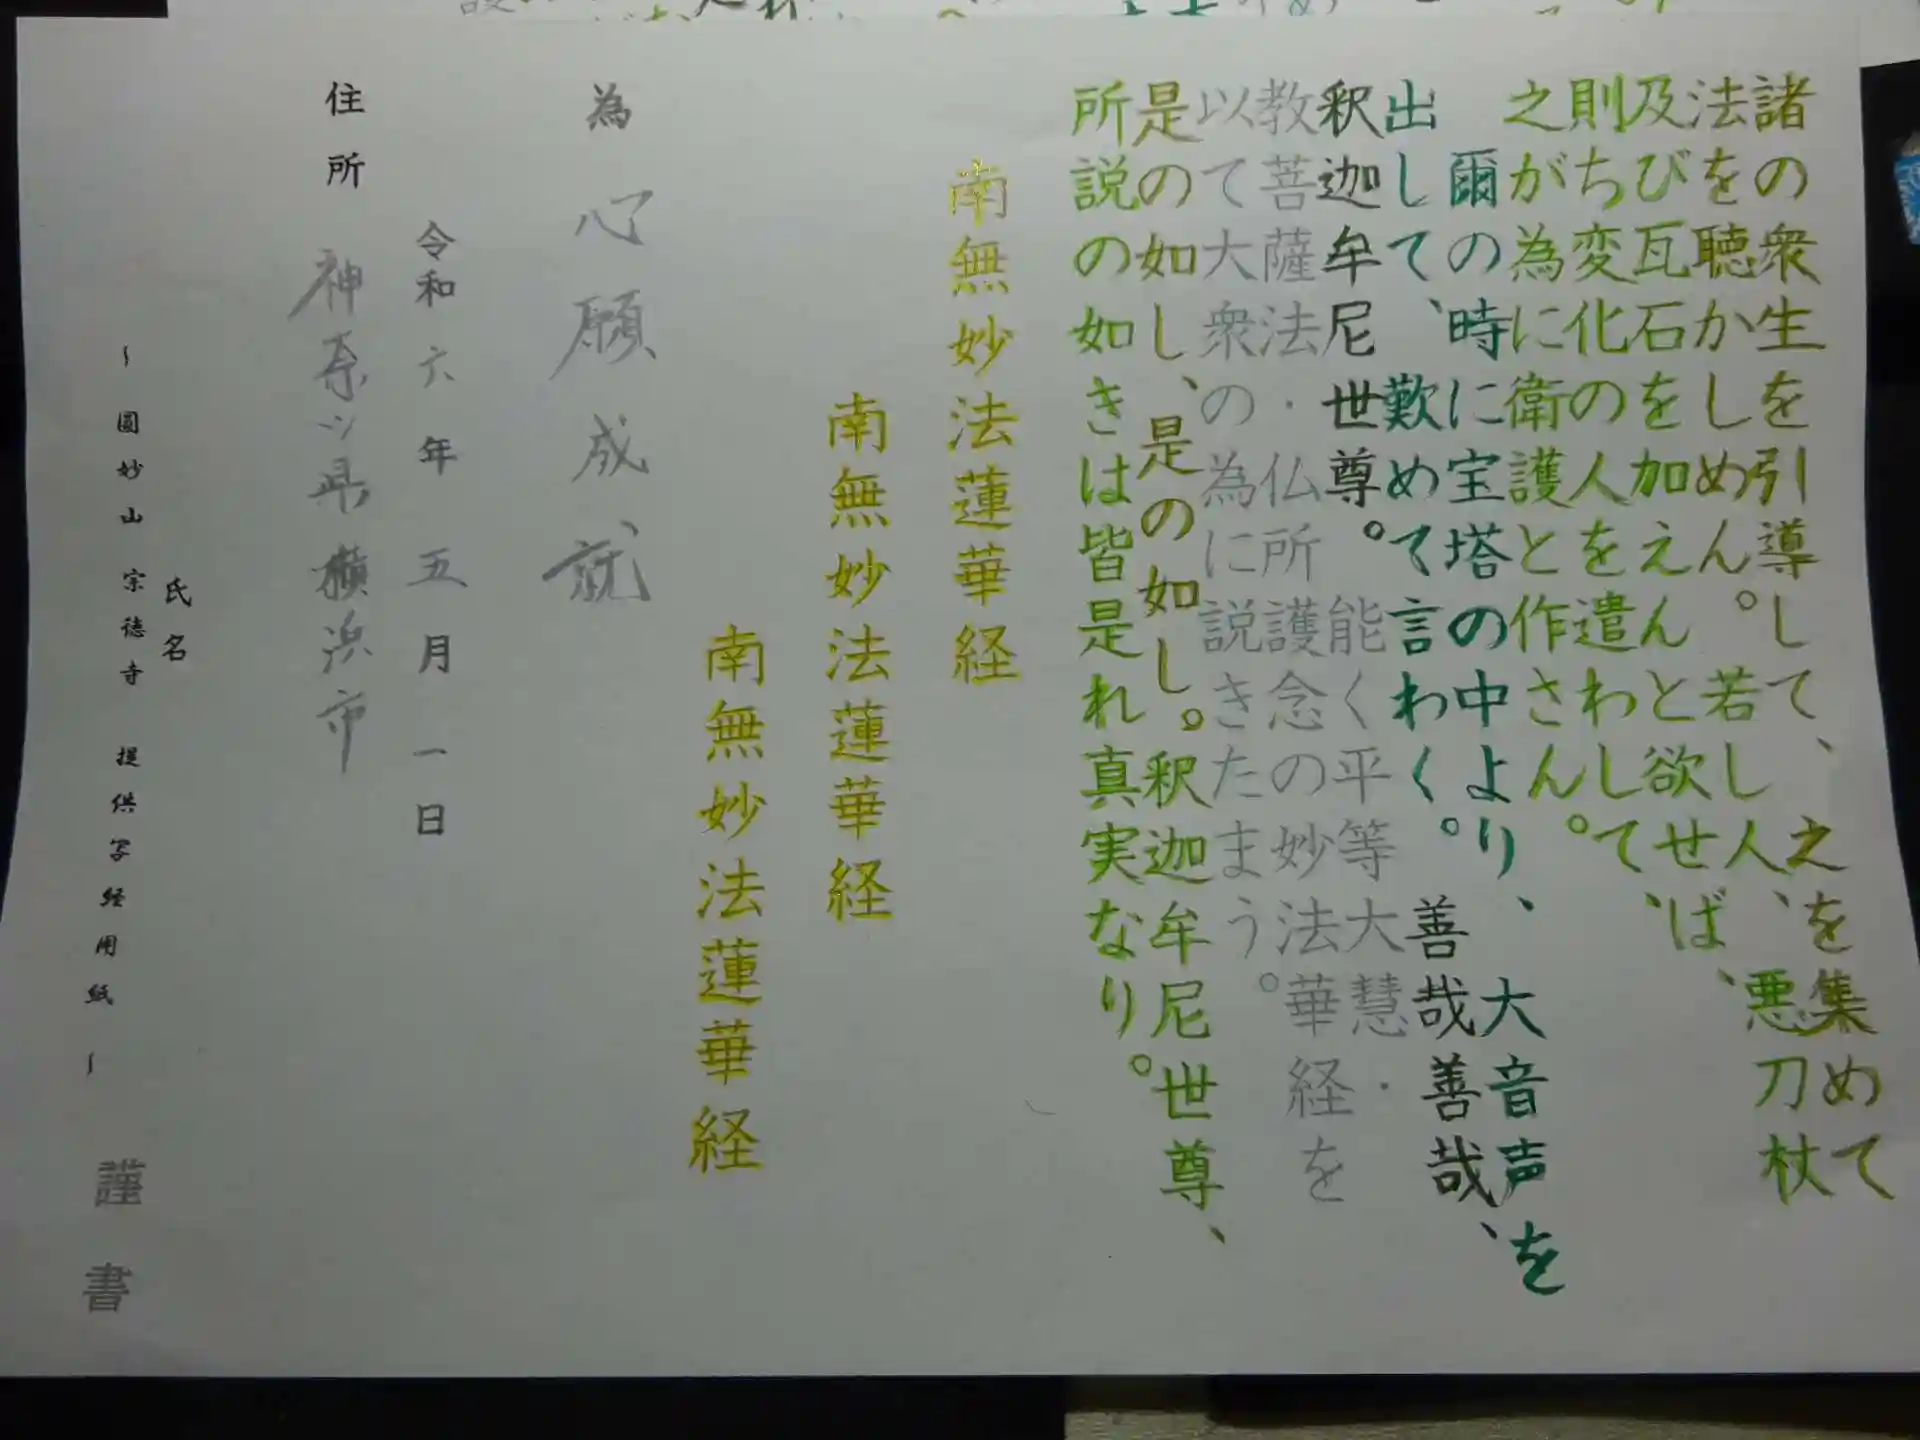 諸の衆生を引導して、之を集めて
法を聴かしめん。若し人、悪刀杖
及び瓦石を加えんと欲せば、
則ち変化の人を遣わして、
之が為に衛護と作さん。
爾の時に宝塔の中より、大音声を
出して、歎めて言わく。善哉善哉、
釈迦牟尼世尊。能く平等大慧・
教菩薩法・仏所護念の妙法華経を
以て大衆の為に説きたまう。
是の如し、是の如し。釈迦牟尼世尊、
所説の如きは皆是れ真実なり。
南無妙法蓮華経
南無妙法蓮華経
南無妙法蓮華経
為 心願成就
令和六年五月一日
住所 神奈川県横浜市
氏名
謹書
~圓妙山 宗徳寺 提供写経用紙~